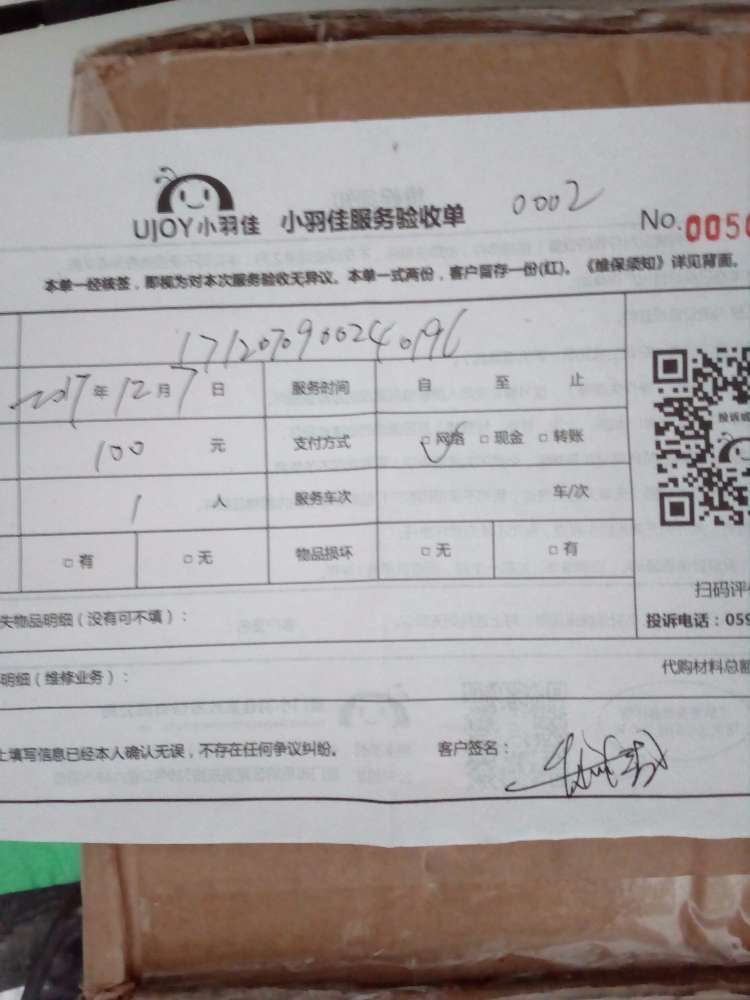 UJOY小羽佳 小羽佳服务验收单 0002 No.0050
本单一经核签，即视为对本次服务验收无异议。本单一式两份，客户留存一份(红)。《维保须知》详见背面。
1712070900240196
2017年12月7日 服务时间 自 至 止
100 元 支付方式 □网络 □现金 □转账
1 人 服务车次 车/次
□有 □无 物品损坏 □无 □有
投诉或
扫码评价
失物品明细（没有可不填）： 投诉电话：059
明细（维修业务）： 代购材料总额
上填写信息已经本人确认无误，不存在任何争议纠纷。 客户签名：